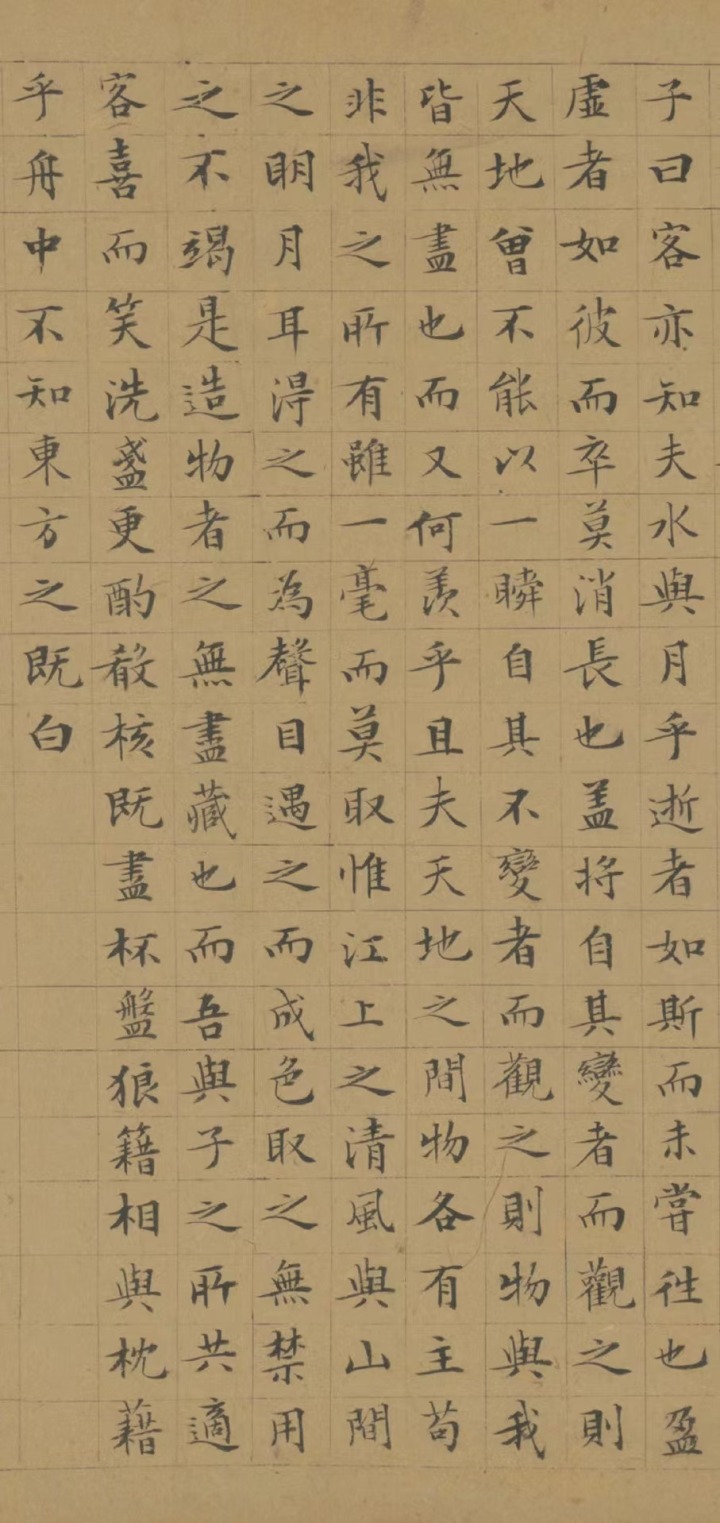 子曰客亦知夫水與月乎逝者如斯而未甞往也盈
虛者如彼而卒莫消長也盖將自其變者而觀之則
天地曾不能以一瞬自其不變者而觀之則物與我
皆無盡也而又何羨乎且夫天地之間物各有主苟
非我之所有雖一毫而莫取惟江上之清風與山間
之明月耳得之而為聲目遇之而成色取之無禁用
之不竭是造物者之無盡藏也而吾與子之所共適
客喜而笑洗盞更酌殽核既盡杯盤狼籍相與枕藉
乎舟中不知東方之既白